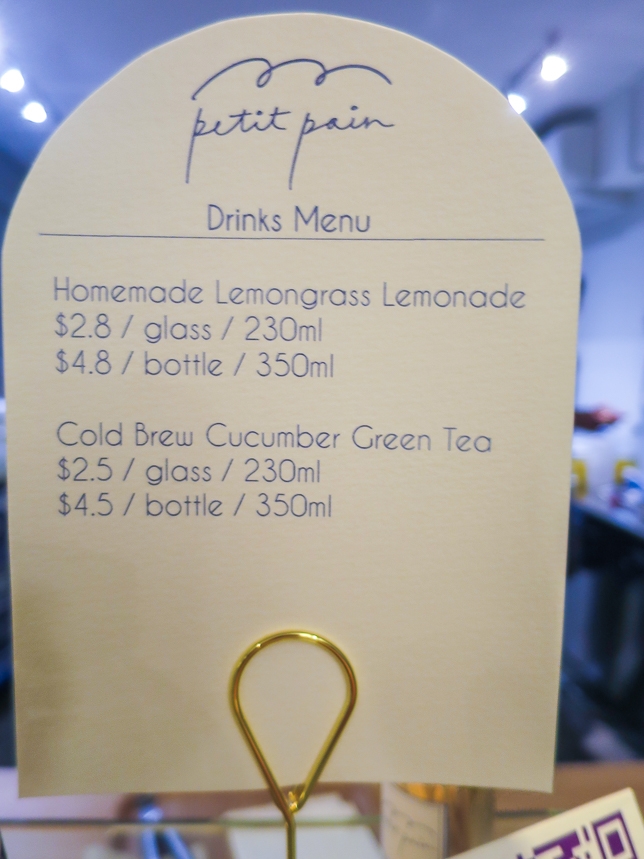 petit pain
Drinks Menu
Homemade Lemongrass Lemonade
$2.8 / glass / 230ml
$4.8 / bottle / 350ml
Cold Brew Cucumber Green Tea
$2.5 / glass / 230ml
$4.5 / bottle / 350ml